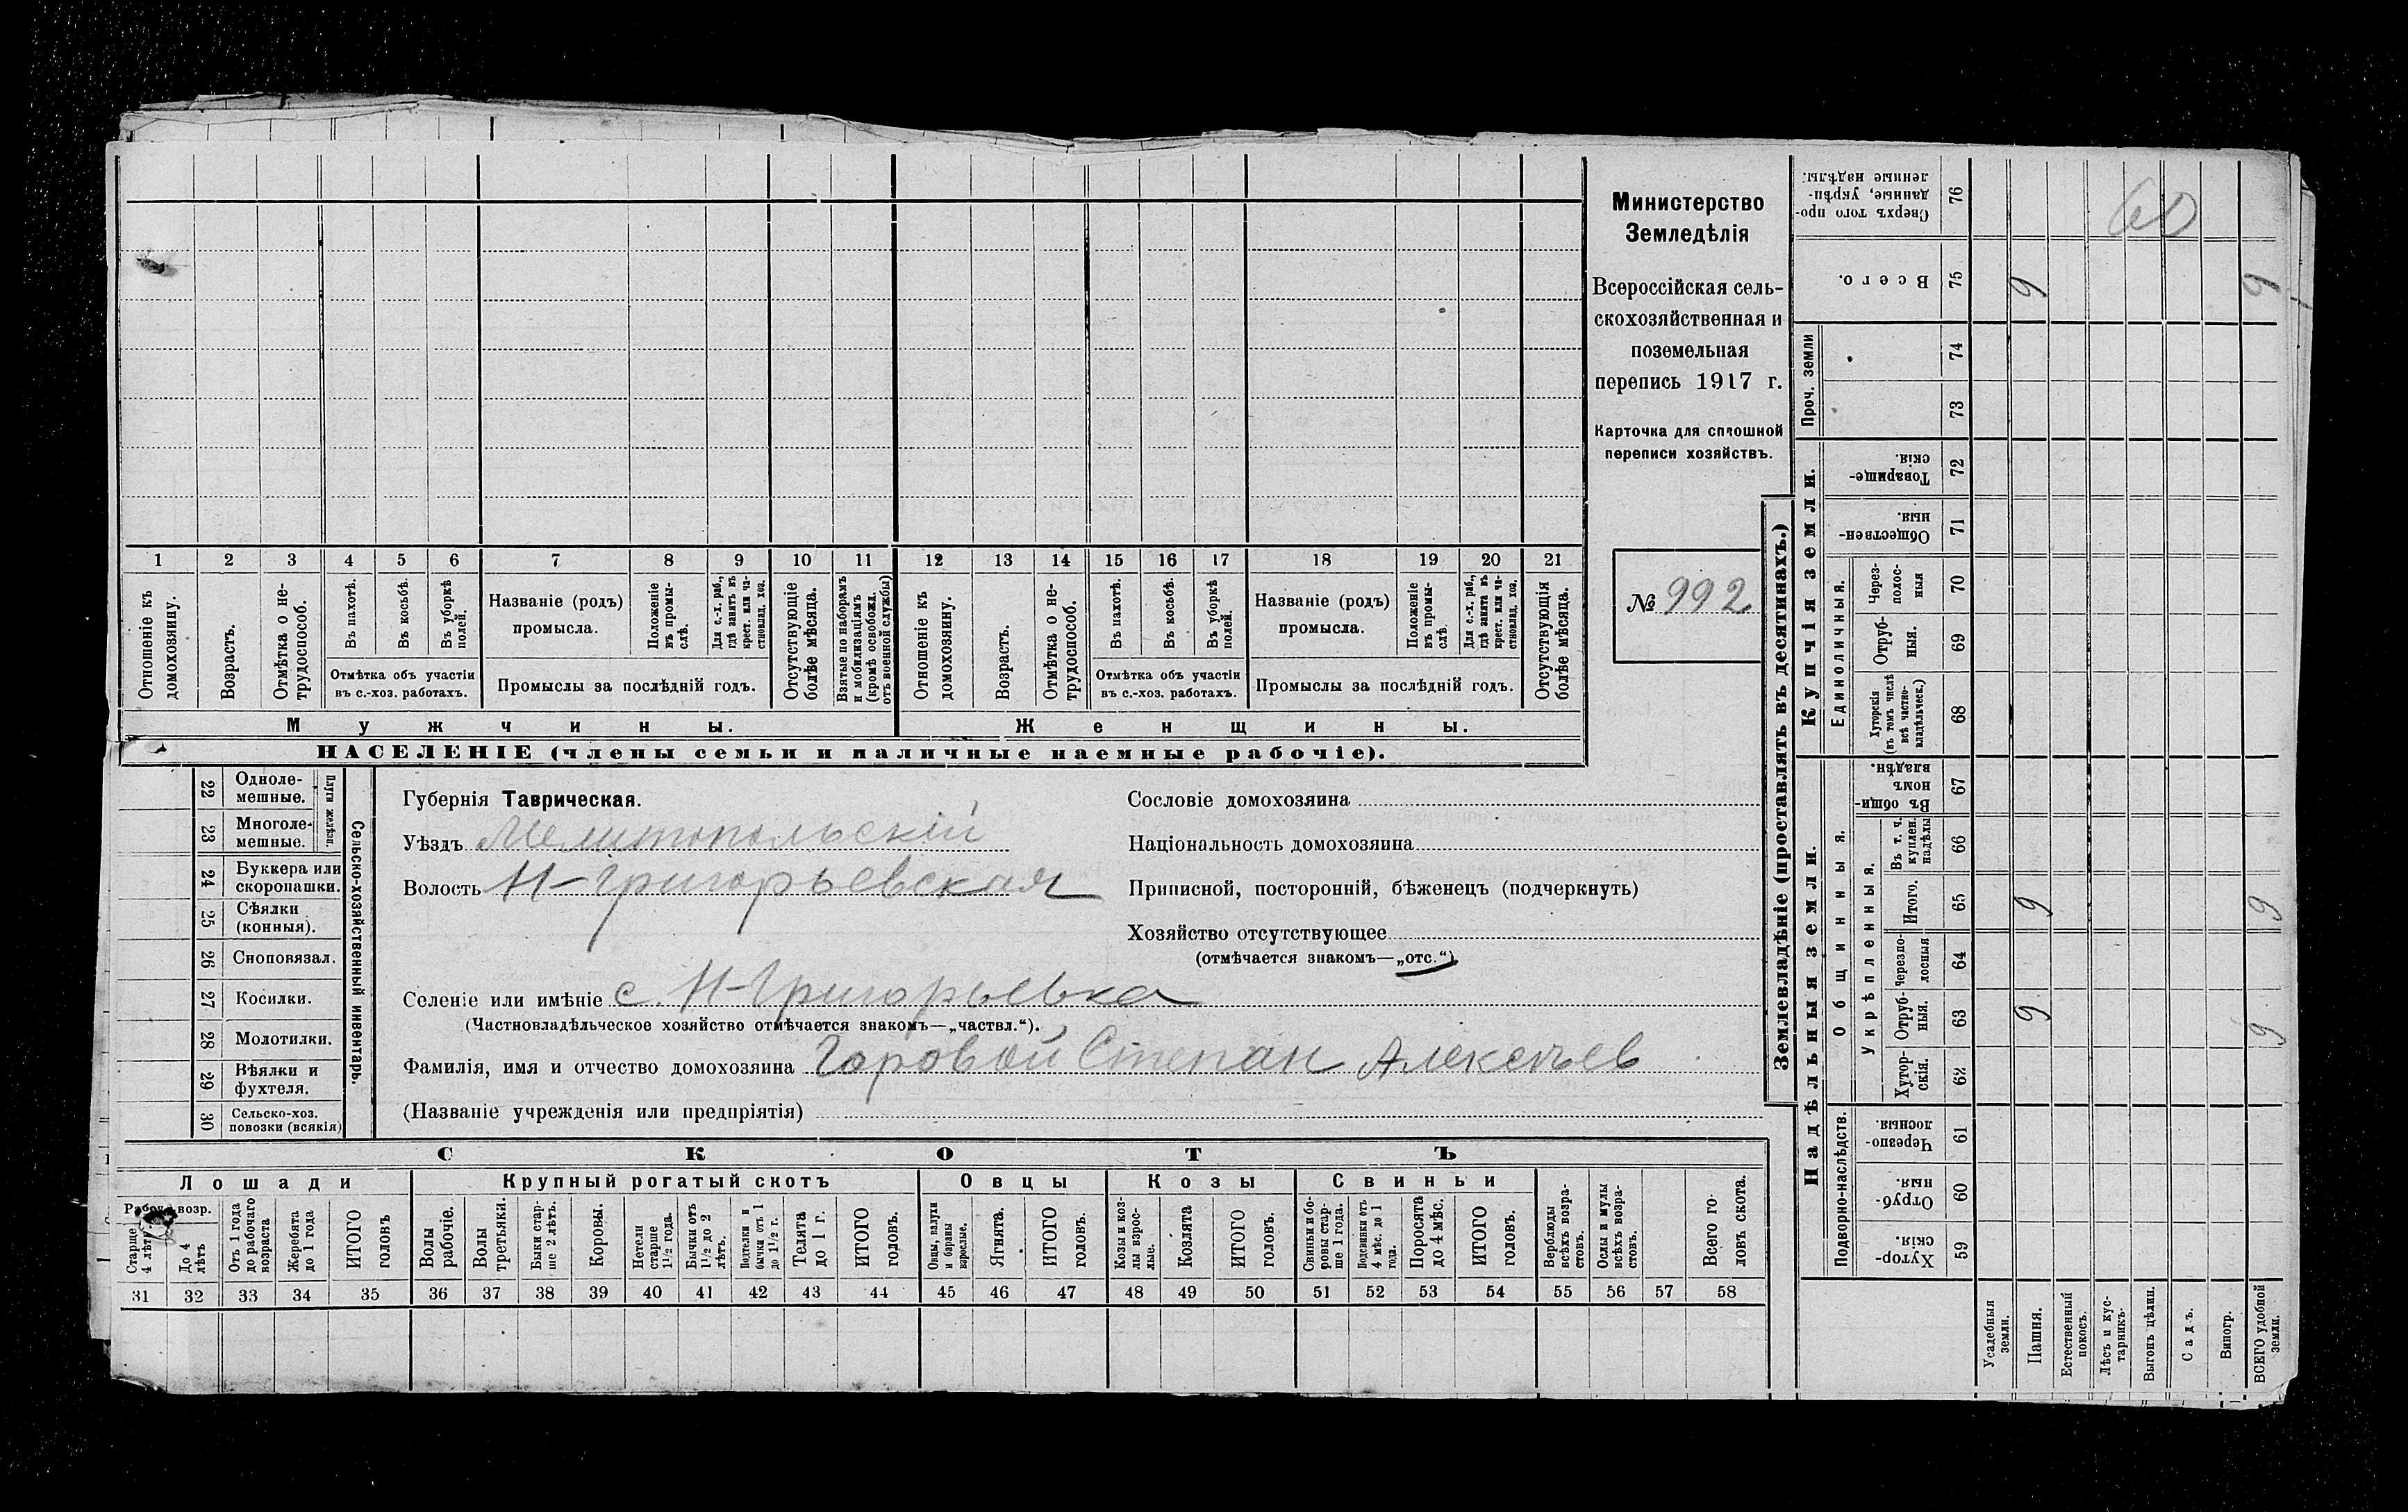 Министерство
Земледѣлія
Всероссійская сель-
скохозяйственная и
поземельная
перепись 1917 г.
Карточка для сплошной
переписи хозяйствъ.
№ 992
1 2 3 4 5 6 7 8 9 10 11 12 13 14 15 16 17 18 19 20 21
Отношеніе къ домохозяину.
Возрастъ.
Отмѣтка о не-трудоспособ.
Въ пахотѣ.
Въ косьбѣ.
Въ уборкѣ полей.
Отмѣтка объ участіи
въ с.-хоз. работахъ.
Названіе (родъ)
промысла.
Положеніе въ промы-слѣ.
Для с.-х. раб., гдѣ занятъ въ крест. или ча-стновлад. хоз.
Промыслы за послѣдній годъ.
Отсутствующіе болѣе мѣсяца.
Взятые по наборамъ и мобилизаціямъ (кромѣ освобожд. отъ военной службы)
Отношеніе къ домохозяину.
Возрастъ.
Отмѣтка о не-трудоспособ.
Въ пахотѣ.
Въ косьбѣ.
Въ уборкѣ полей.
Отмѣтка объ участіи
въ с.-хоз. работахъ.
Названіе (родъ)
промысла.
Положеніе въ промы-слѣ.
Для с.-х. раб., гдѣ занята въ крест. или ча-стновлад. хоз.
Промыслы за послѣдній годъ.
Отсутствующія болѣе мѣсяца.
Мужчины.
Женщины.
НАСЕЛЕНІЕ (члены семьи и наличные наемные рабочіе).
22 Одноле-мешные.
23 Многоле-мешные.
Плуги желѣзн.
24 Буккера или скоропашки.
25 Сѣялки (конныя).
26 Сноповязал.
27 Косилки.
28 Молотилки.
29 Вѣялки и фухтеля.
30 Сельско-хоз. повозки (всякія)
Сельско-хозяйственный инвентарь.
Губернія Таврическая.
Уѣздъ Мелитопольскій
Волость Н-Григорьевская
Селеніе или имѣніе с. Н-Григорьевка
(Частновладѣльческое хозяйство отмѣчается знакомъ—„частвл.“).
Фамилія, имя и отчество домохозяина Горовой Степан Алексѣев
(Названіе учрежденія или предпріятія)
Сословіе домохозяина
Національность домохозяина
Приписной, посторонній, бѣженецъ (подчеркнуть)
Хозяйство отсутствующее
(отмѣчается знакомъ—„отс.“)
СКОТЪ
Лошади
Крупный рогатый скотъ
Овцы
Козы
Свиньи
Рабоч. возр.
Старше 4 лѣтъ
До 4 лѣтъ
Отъ 1 года до рабочаго возраста
Жеребята до 1 года
ИТОГО головъ
Волы рабочіе.
Волы третьяки.
Быки стар-ше 2 лѣтъ.
Коровы.
Нетели старше 1½ года.
Бычки отъ 1½ до 2 лѣтъ.
Подтелки и бычки отъ 1 до 1½ г.
Телята до 1 г.
ИТОГО головъ.
Овцы, валухи и бараны взрослые.
Ягнята.
ИТОГО головъ.
Козы и коз-лы взрос-лые.
Козлята
ИТОГО головъ.
Свиньи и бо-ровы стар-ше 1 года.
Подсвинки отъ 4 мѣс. до 1 года.
Поросята до 4 мѣс.
ИТОГО головъ.
Верблюды всѣхъ возра-стовъ.
Ослы и мулы всѣхъ возра-стовъ.
Всего го-ловъ скота.
31 32 33 34 35 36 37 38 39 40 41 42 43 44 45 46 47 48 49 50 51 52 53 54 55 56 57 58
Землевладѣніе (проставлять въ десятинахъ.)
Сверхъ того про-данные, укрѣп-ленные надѣлы. 76 60
Всего. 75 9 9
Проч. земли 74
73
Купчія земли.
Товарище-скія. 72
Обществен-ныя. 71
Единоличныя.
Через-полос-ныя 70
Отруб-ныя. 69
Хуторскія (въ томъ числѣ всѣ частно-владѣльческ.) 68
Надѣльныя земли.
Общинныя.
Въ общи-номъ владѣн. 67
Укрѣпленныя.
Въ т. ч. куплен. надѣлы 66
Итого. 65 9 9
Черезпо-лосныя 64
Отруб-ныя. 63 9 9
Хутор-скія. 62
Подворно-наслѣдств.
Черезпо-лосныя 61
Отруб-ныя. 60
Хутор-скія. 59
Усадебныя земли.
Пашня.
Естественный покосъ.
Лѣсъ и кус-тарникъ.
Выгонъ цѣлин.
Садъ.
Виногр.
ВСЕГО удобной земли.